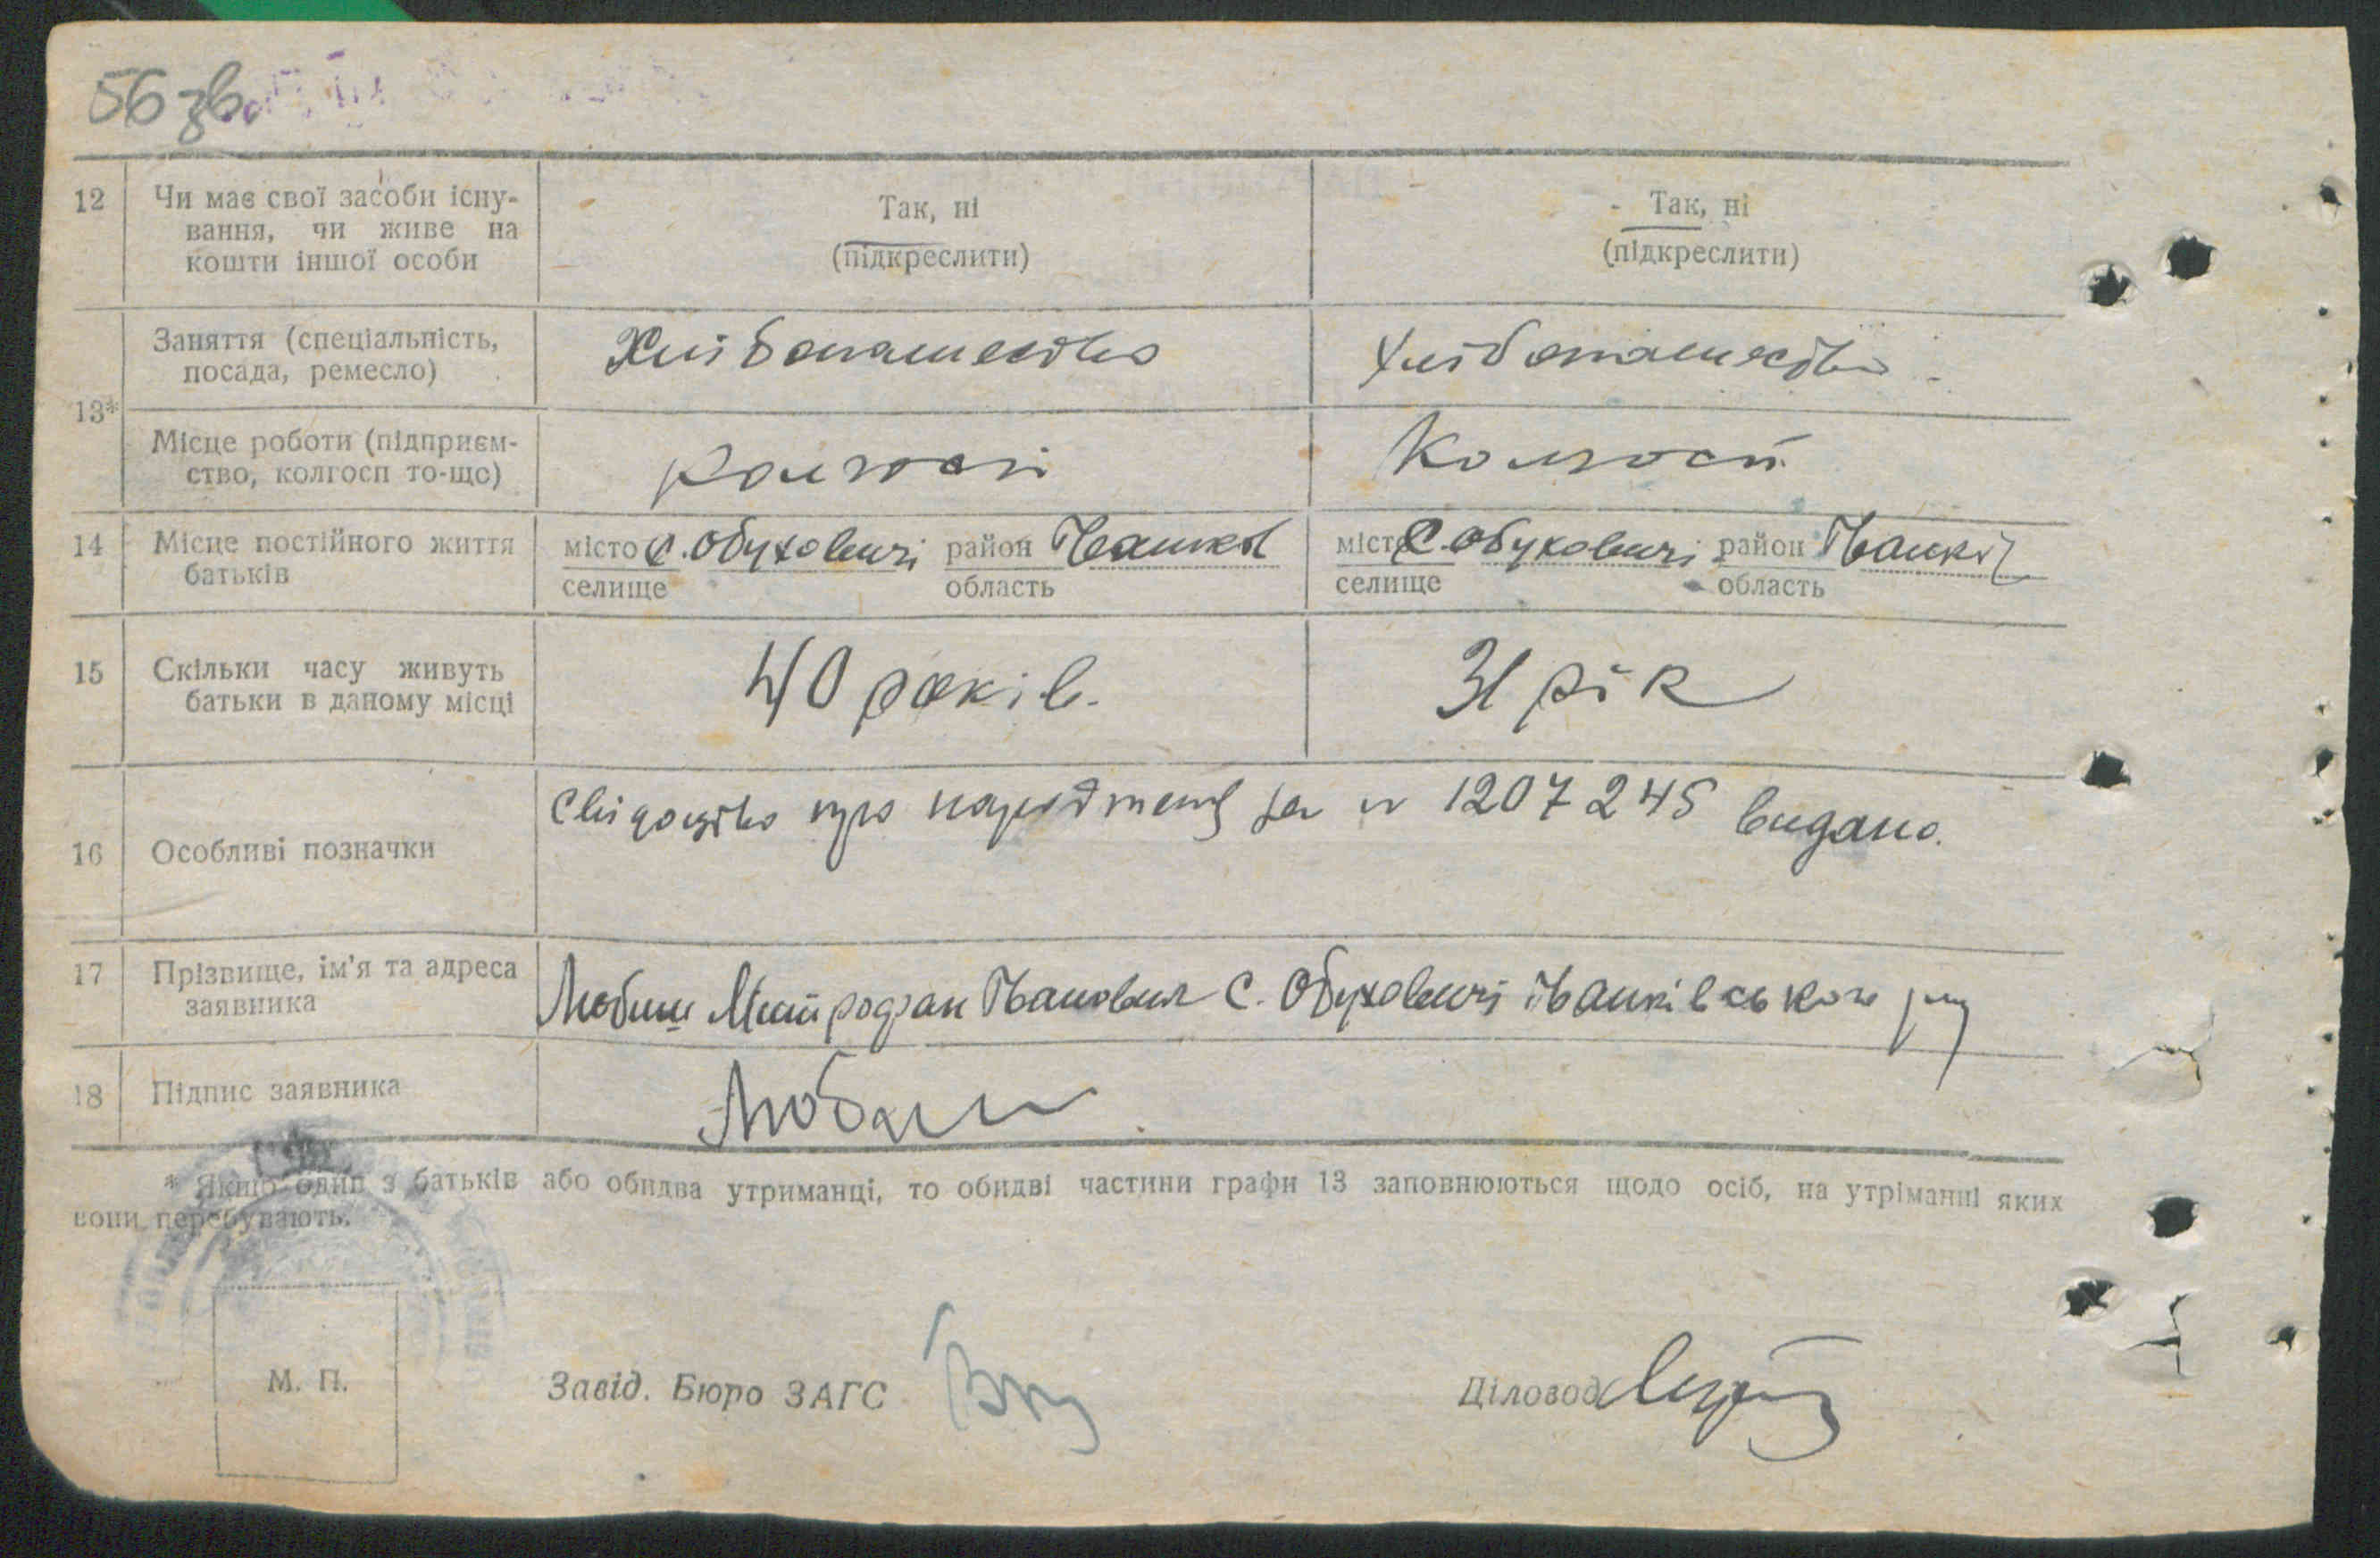 56 зв.
12 Чи має свої засоби існу- Так, ні Так, ні
вання, чи живе на (підкреслити) (підкреслити)
кошти іншої особи
13* Заняття (спеціальність, Хліборобство Хліборобство
посада, ремесло)
Місце роботи (підприєм- Колгосп Колгосп
ство, колгосп то-що)
14 Місце постійного життя місто С. Обуховичі район Іванків місто С. Обуховичі район Іванків
батьків селище область селище область
15 Скільки часу живуть 40 років. 31 рік
батьки в даному місці
16 Особливі позначки Свідоцтво про народження за № 1207245 видано.
17 Прізвище, ім'я та адреса Митрофан Іванович С. Обуховичі Іванківського р-ну
заявника
18 Підпис заявника
* Якщо один з батьків або обидва утриманці, то обидві частини графи 13 заповнюються щодо осіб, на утріманні яких
вони перебувають.
М. П. Завід. Бюро ЗАГС Діловод